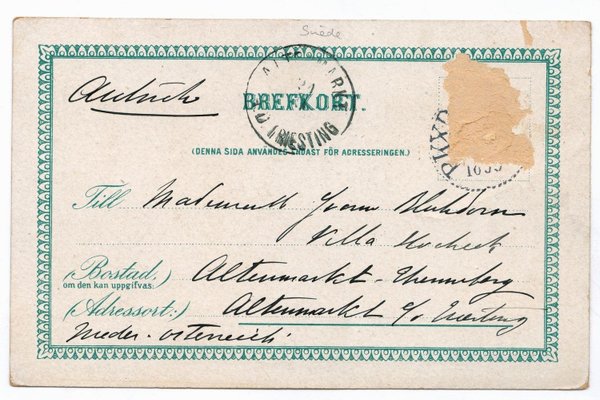 Suède
ALTENMARKT
21
TRIESTING
Autriche
BREFKORT.
(DENNA SIDA ANVÄNDES ENDAST FÖR ADRESSERINGEN.)
PKXP
1899
Till Yvonne
Villa Hocheck
(Bostad, Altenmarkt-Thenneberg
om den kan uppgifvas:)
(Adressort:) Altenmarkt a/ Triesting
Nieder-Österreich